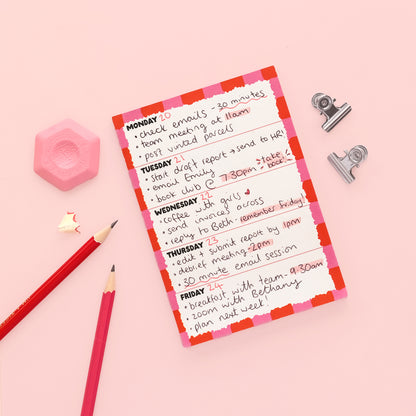 MONDAY 20
• check emails - 30 minutes
• team meeting at 11am
• post vinted parcels
TUESDAY 21
• Start draft report → send to HR!
• email Emily
• book club @ 7.30pm → take book!
WEDNESDAY 22
• coffee with girls ♥
• send invoices across
• reply to Beth - remember Friday!
THURSDAY 23
• edit + submit report by 1pm
• debrief meeting - 2pm
• 30 minute email session
FRIDAY 24
• breakfast with team - 9.30am
• zoom with Bethany
• plan next week!